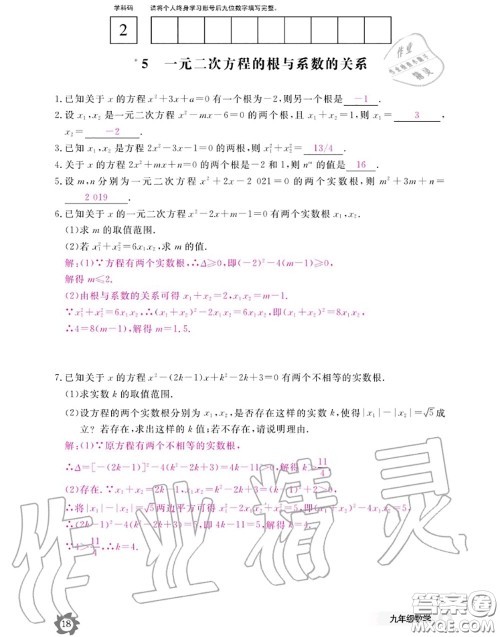 学科码 请将个人终身学习账号后九位数字填写完整。
2
*5 一元二次方程的根与系数的关系
1.已知关于 x 的方程 x²+3x+a=0 有一个根为-2,则另一个根是 -1 .
2.设 x₁,x₂ 是一元二次方程 x²-mx-6=0 的两个根,且 x₁+x₂=1,则 x₁= 3 ,
x₂= -2 .
3.已知 x₁,x₂ 是方程 2x²-3x-1=0 的两根,则 x₁²+x₂²= 13/4 .
4.关于 x 的方程 2x²+mx+n=0 的两个根是-2 和 1,则 nᵐ 的值是 16 .
5.设 m,n 分别为一元二次方程 x²+2x-2 021=0 的两个实数根,则 m²+3m+n=
2 019 .
6.已知关于 x 的一元二次方程 x²-2x+m-1=0 有两个实数根 x₁,x₂.
(1)求 m 的取值范围.
(2)若 x₁²+x₂²=6x₁x₂,求 m 的值.
解:(1)∵方程有两个实数根,∴Δ≥0,即(-2)²-4(m-1)≥0,
解得 m≤2.
(2)由根与系数的关系可得 x₁+x₂=2,x₁x₂=m-1.
∵x₁²+x₂²=6x₁x₂,∴(x₁+x₂)²-2x₁x₂=6x₁x₂,即(x₁+x₂)²=8x₁x₂,
∴4=8(m-1),解得 m=1.5.
7.已知关于 x 的方程 x²-(2k-1)x+k²-2k+3=0 有两个不相等的实数根.
(1)求实数 k 的取值范围.
(2)设方程的两个实数根分别为 x₁,x₂,是否存在这样的实数 k,使得|x₁|-|x₂|=√5成
立?若存在,求出这样的 k 值;若不存在,请说明理由.
解:(1)∵原方程有两个不相等的实数根,
∴Δ=[-(2k-1)]²-4(k²-2k+3)=4k-11>0,解得 k>11/4.
(2)存在.∵x₁+x₂=2k-1,x₁x₂=k²-2k+3=(k-1)²+2>0,
∴将|x₁|-|x₂|=√5两边平方可得 x₁²-2x₁x₂+x₂²=5,即(x₁+x₂)²-4x₁x₂=5,
∴(2k-1)²-4(k²-2k+3)=5,即4k-11=5,解得 k=4.
∵4>11/4,∴k=4.
18
九年级数学
作业精灵